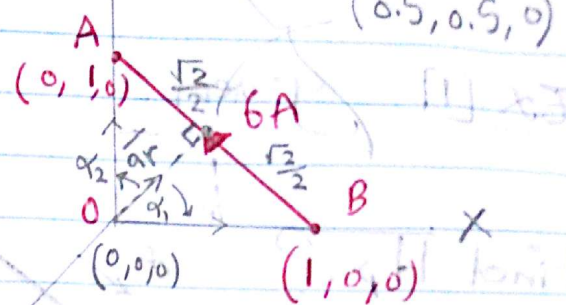 (0.5, 0.5, 0)
A
(0, 1, 0)
√2/2
6A
√2/2
α2
ar
α1
B
O
X
(0,0,0)
(1, 0, 0)